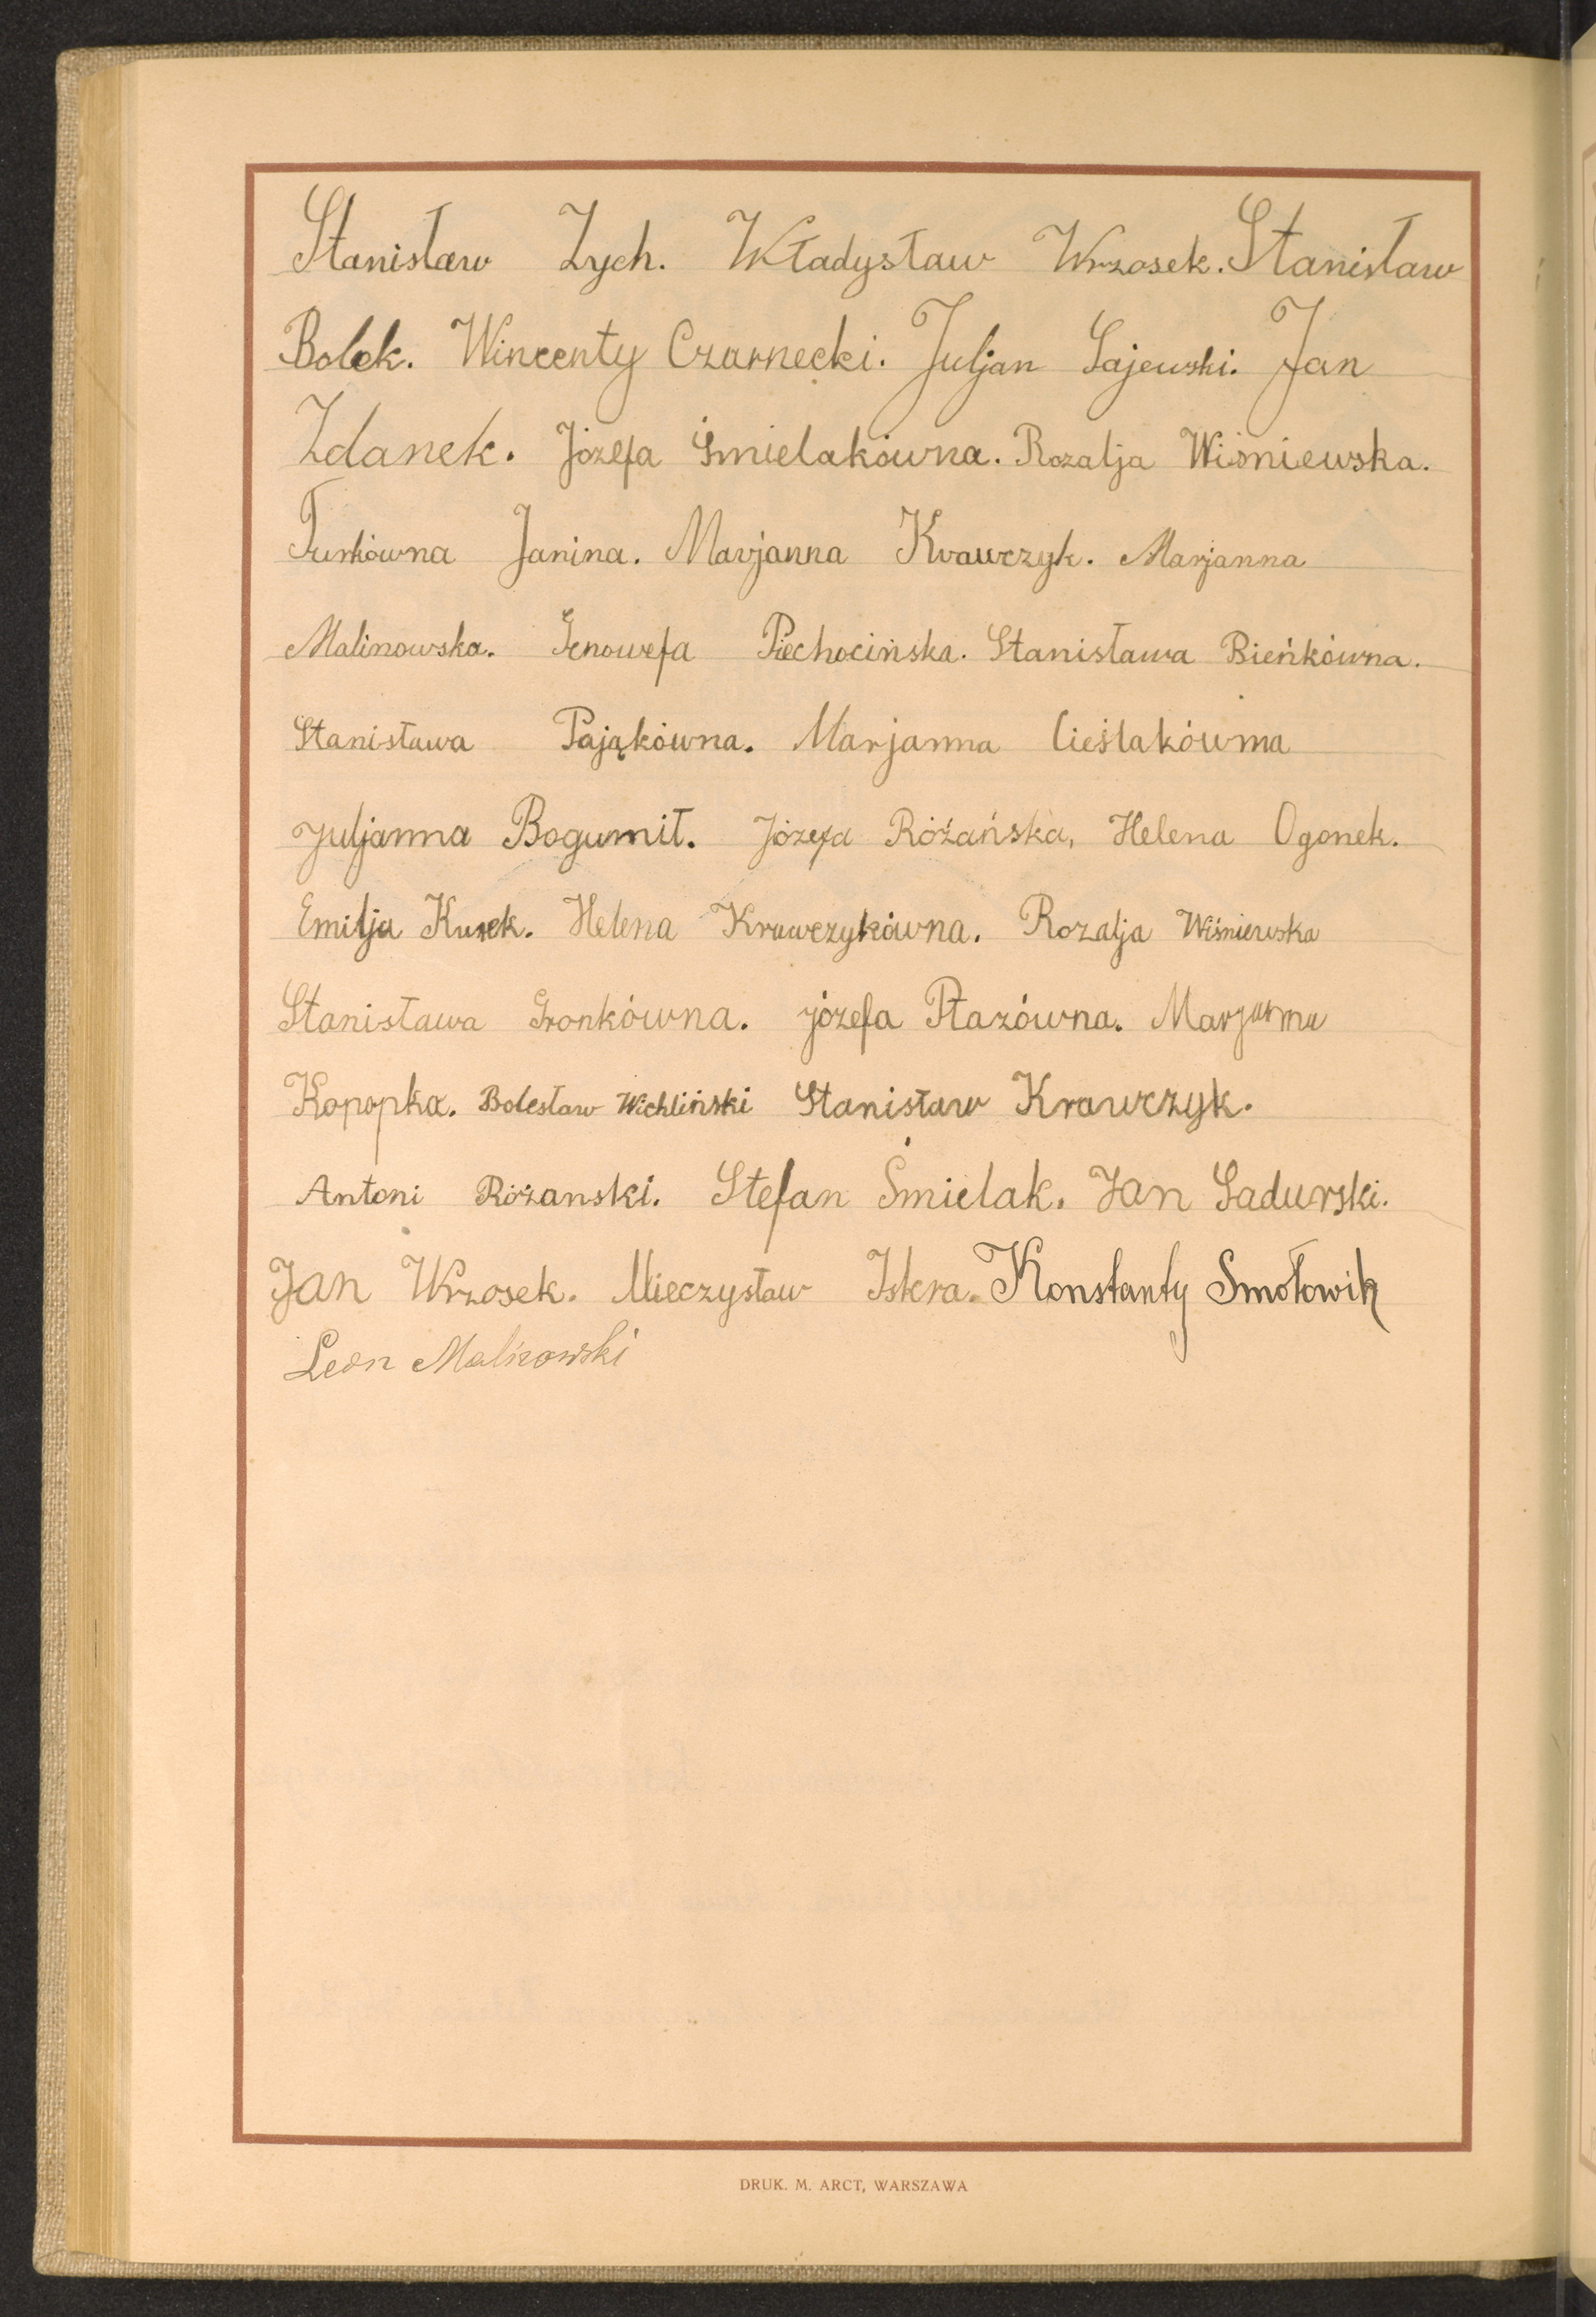 Stanisław Zych. Władysław Wrzosek. Stanisław
Bolek. Wincenty Czarnecki. Juljan Gajewski. Jan
Zdanek. Józefa Śmielakówna. Rozalja Wiśniewska.
Turkówna Janina. Marjanna Krawczyk. Marjanna
Malinowska. Genowefa Piechocińska. Stanisława Bieńkówna.
Stanisława Pająkówna. Marjanna Cieślakówna
Juljanna Bogumił. Józefa Różańska, Helena Ogonek.
Emilja Kurek. Helena Krawczykówna. Rozalja Wiśniewska
Stanisława Gronkówna. józefa Ptazówna. Marjanna
Kopopka. Bolesław Wichliński Stanisław Krawczyk.
Antoni Różanski. Stefan Śmielak. Jan Sadurski.
Jan Wrzosek. Mieczysław Iskra. Konstanty Smołowik
Leon Malinowski
DRUK. M. ARCT, WARSZAWA